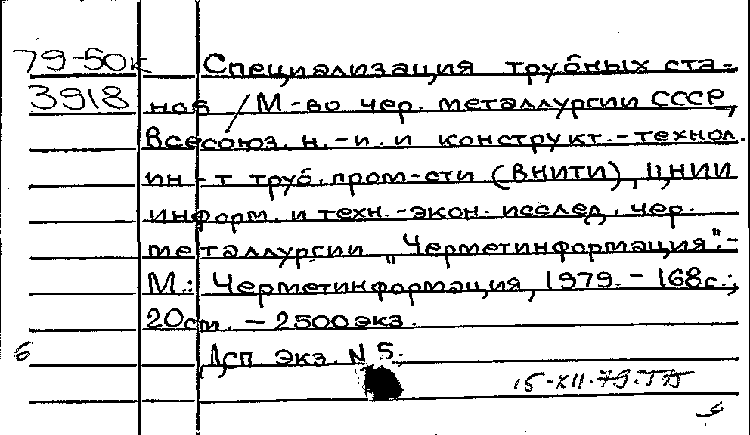 79-50к Специализация трубных ста-
3918 нов / М-во чер. металлургии СССР,
Всесоюз. н.-и. и конструкт.-технол.
ин-т труб. пром-сти (ВНИТИ), ЦНИИ
информ. и техн.-экон. исслед. чер.
металлургии „Черметинформация".-
М.: Черметинформация, 1979. - 168с.;
20см. - 2500экз.
б Дсп Экз. N 5.
15-XII-79.